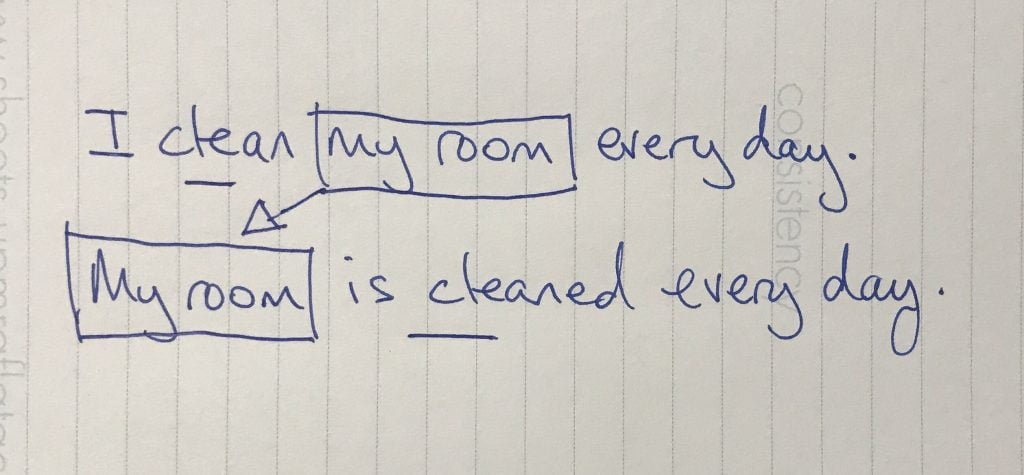 I clean my room every day.
My room is cleaned every day.